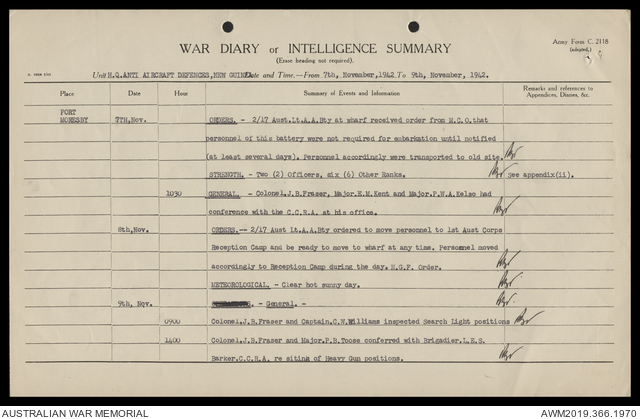 Army Form C. 2118
(adapted.)
WAR DIARY or INTELLIGENCE SUMMARY
(Erase heading not required).
Unit H.Q.ANTI AIRCRAFT DEFENCES,NEW GUINEA Date and Time.—From 7th, November,1942 To 9th, November, 1942.
Place Date Hour Summary of Events and Information Remarks and references to Appendices, Diaries, &c.
PORT MORESBY 7TH,Nov. ORDERS. - 2/17 Aust.Lt.A.A.Bty at wharf received order from M.C.O.that
personnel of this battery were not required for embarkation until notified
(at least several days). Personnel accordingly were transported to old site.
STRENGTH. - Two (2) Officers, six (6) Other Ranks. See appendix(ii).
1030 GENERAL. - Colonel.J.B.Fraser, Major.E.M.Kent and Major.P.W.A.Kelso had
conference with the C.C.R.A. at his office.
8th,Nov. ORDERS.-- 2/17 Aust Lt.A.A.Bty ordered to move personnel to 1st Aust Corps
Reception Camp and be ready to move to wharf at any time. Personnel moved
accordingly to Reception Camp during the day. N.G.F. Order.
METEOROLOGICAL. - Clear hot sunny day.
9th, Nov. - General. -
0900 Colonel.J.B.Fraser and Captain.C.W.Williams inspected Search Light positions
1400 Colonel.J.B.Fraser and Major.P.B.Toose conferred with Brigadier.L.E.S.
Barker.C.C.R.A. re siting of Heavy Gun positions.
AUSTRALIAN WAR MEMORIAL AWM2019.366.1970